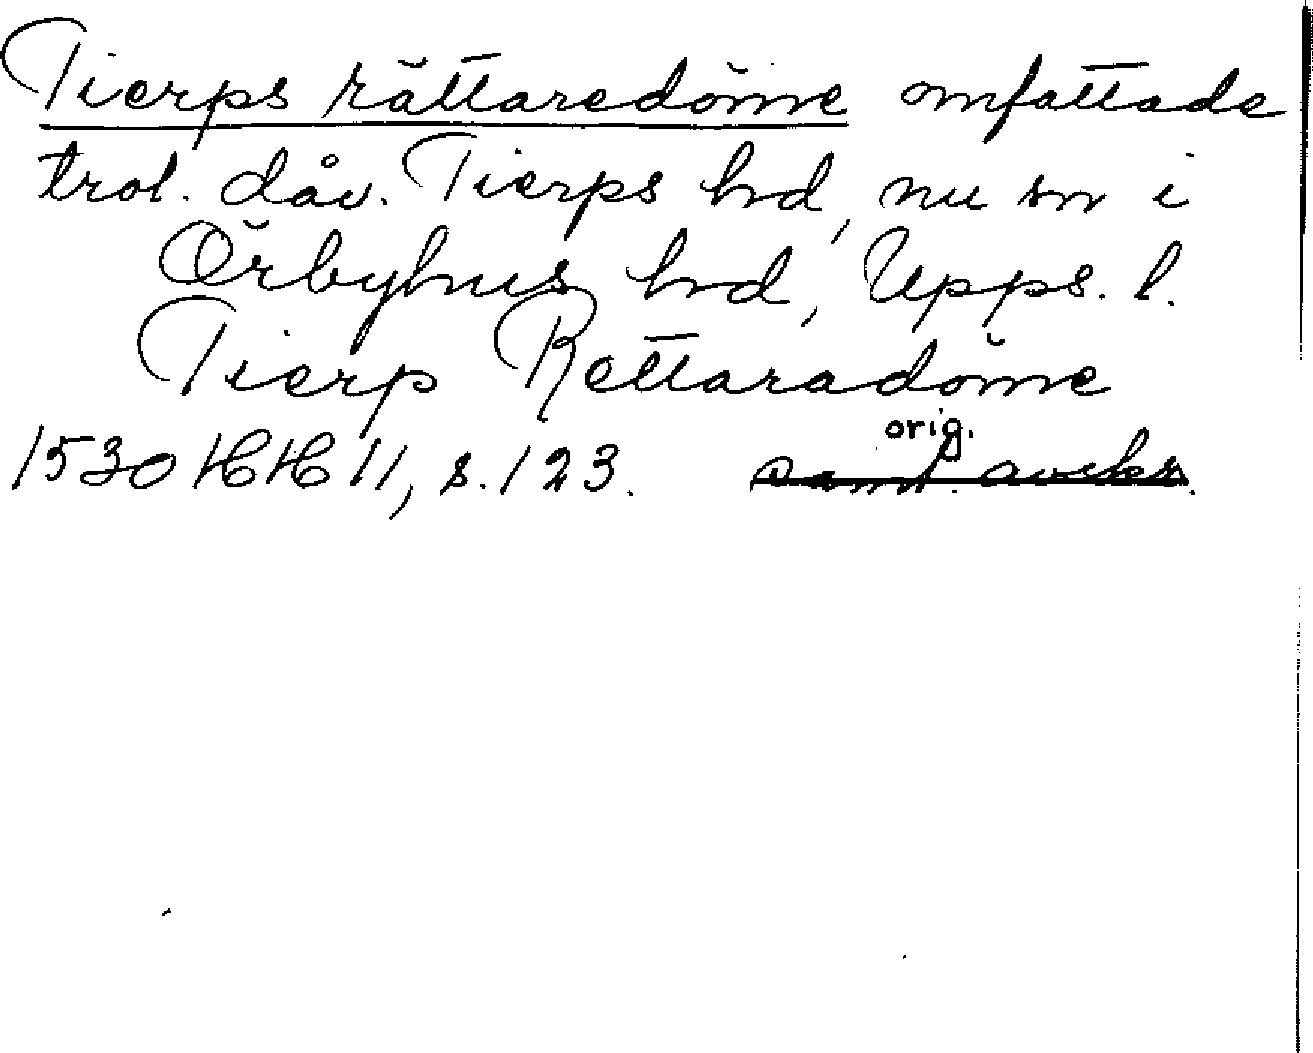 Tierps rättaredöme omfattade
trol. dåv. Tierps hd, nu sn i
Örbyhus hd, Upps. l.
Tierp Rettaradöme
orig.
1530 HH 11, s. 123. samt. avskr.